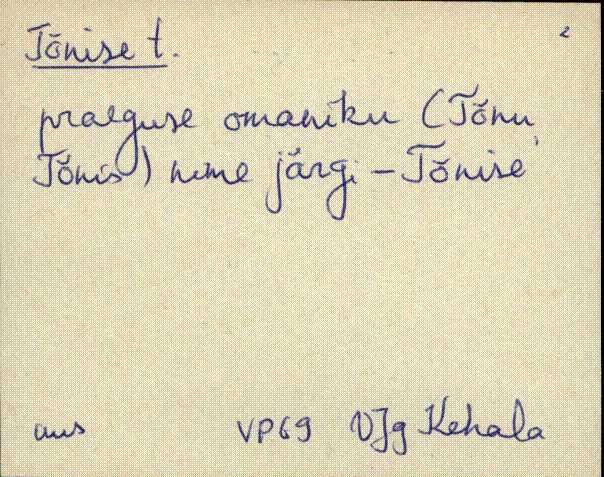 2
Tõnise t.
praeguse omaniku (Tõnu,
Tõnis) nime järgi – Tõnise
aus VP69 VJg Kehala